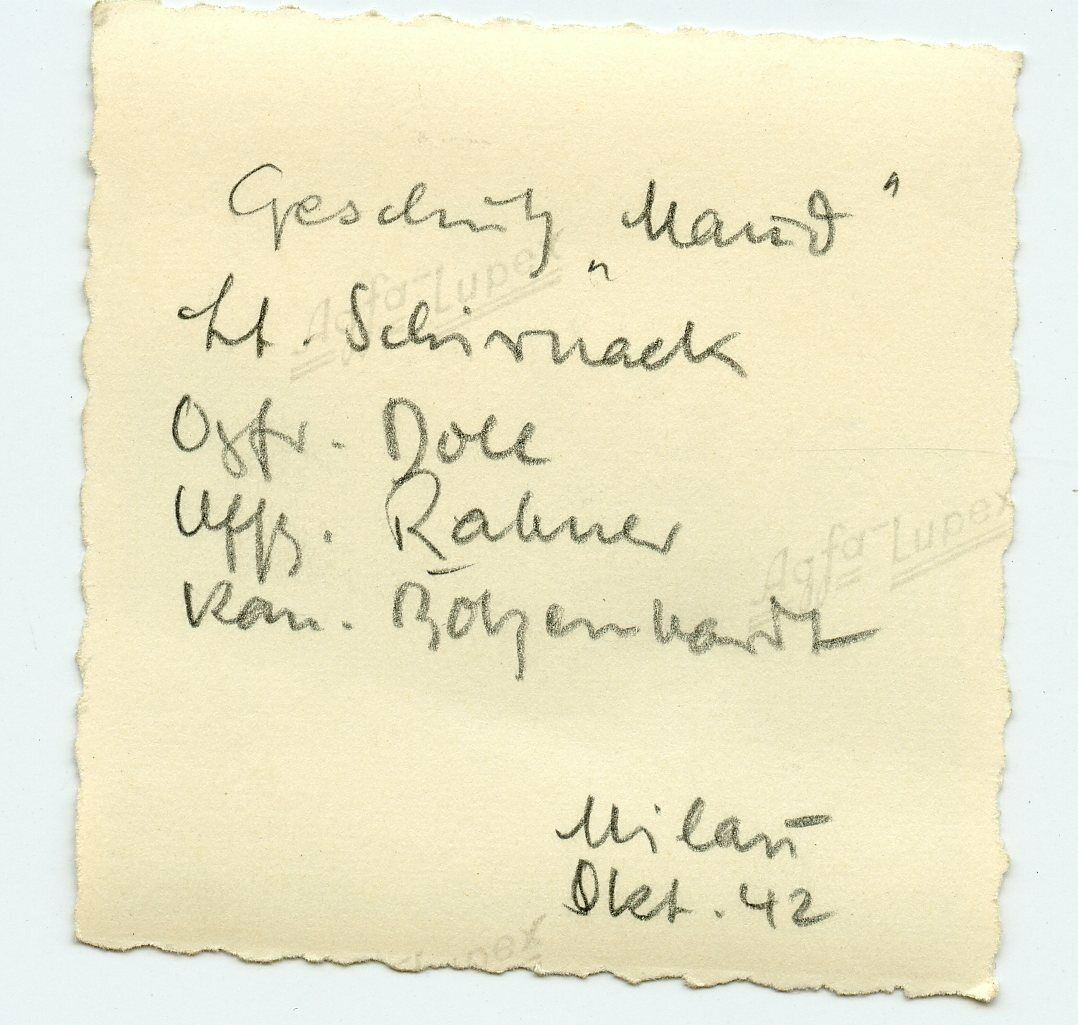 Geschütz „Maud"
Lt. Schirnack
Ogfr. Doll
Uffz. Rahner
Kan. Botzenhardt
Milau
Okt. 42
Agfa-Lupex
Agfa-Lupex
Lupex